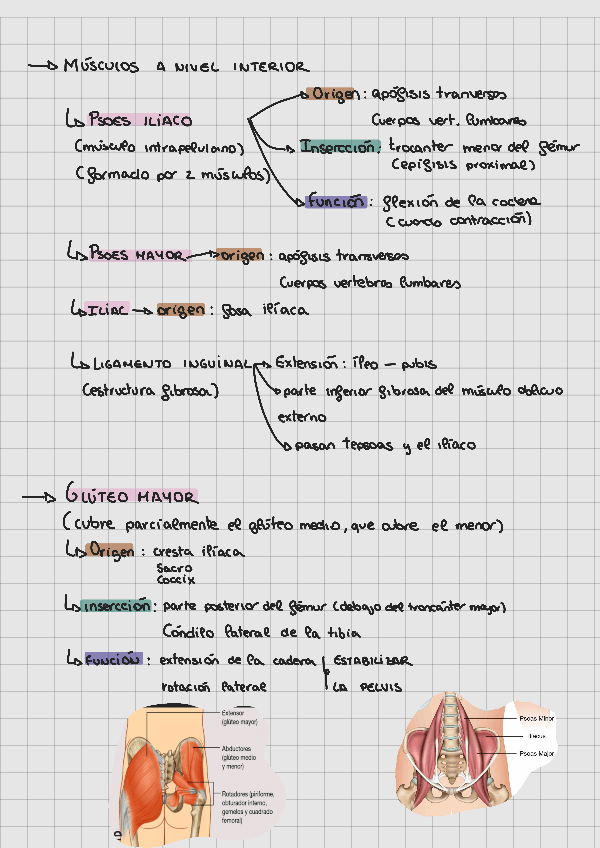 → MÚSCULOS A NIVEL INTERIOR
↳ PSOES ILIACO
(músculo intrapelviano)
(formado por 2 músculos)
Origen: apófisis tranversos
Cuerpos vert. lumbares
Insercción: trocanter menor del fémur
(epífisis proximal)
Función: flexión de la cadera
(cuando contracción)
↳ PSOES MAYOR → origen: apófisis transversos
Cuerpos vertebros lumbares
↳ ILIAC → origen: fosa ilíaca
↳ LIGAMENTO INGUINAL
(estructura fibrosa)
→ Extensión: íleo – pubis
→ parte inferior fibrosa del músculo oblicuo
externo
→ pasan y el ilíaco
→ GLÚTEO MAYOR
(cubre parcialmente el glúteo medio, que cubre el menor)
↳ Origen: cresta ilíaca
Sacro
Coccix
↳ insercción: parte posterior del fémur (debajo del troncánter mayor)
Cóndilo lateral de la tibia
↳ Función: extensión de la cadera | ESTABILIZAR
rotación lateral | LA PELVIS
Extensor
(glúteo mayor)
Abductores
(glúteo medio
y menor)
Rotadores (piriforme,
obturador interno,
gemelos y cuadrado
femoral)
Psoas Minor
Iliacus
Psoas Major